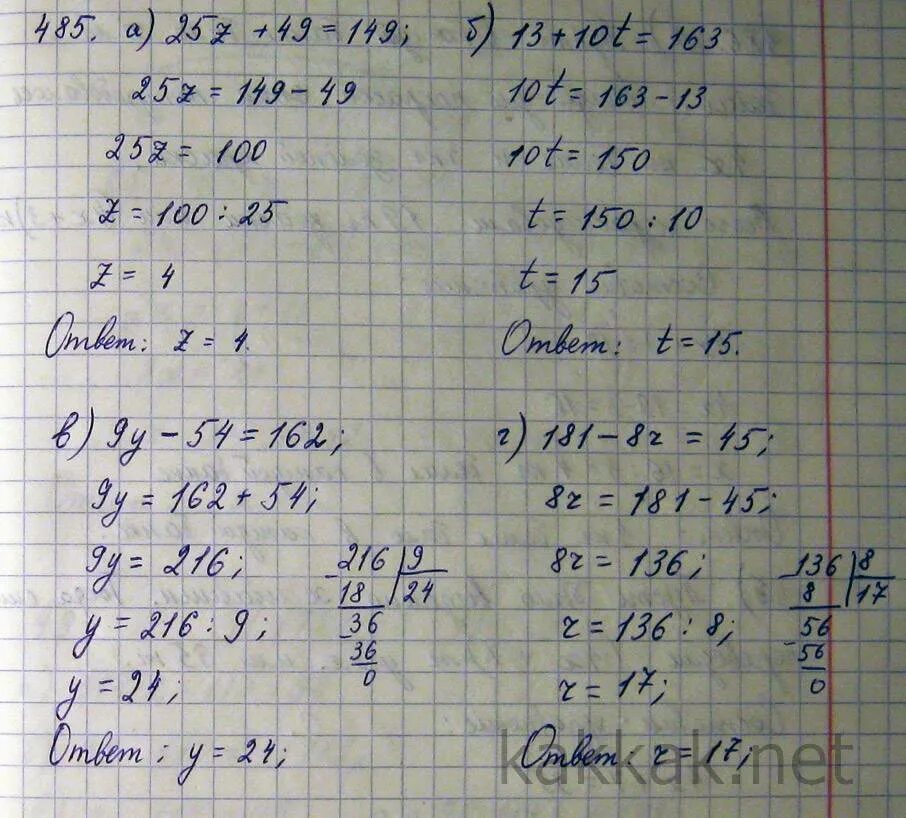 485. а) 25z + 49 = 149;
25z = 149 - 49
25z = 100
z = 100 : 25
z = 4
Ответ: z = 4.
б) 13 + 10t = 163
10t = 163 - 13
10t = 150
t = 150 : 10
t = 15
Ответ: t = 15.
в) 9y - 54 = 162;
9y = 162 + 54;
9y = 216;
y = 216 : 9;
y = 24;
Ответ: y = 24;
-216 | 9
18 | 24
-36
36
0
г) 181 - 8r = 45;
8r = 181 - 45;
8r = 136;
r = 136 : 8;
r = 17;
Ответ: r = 17;
-136 | 8
8 | 17
-56
56
0
kakkak.net